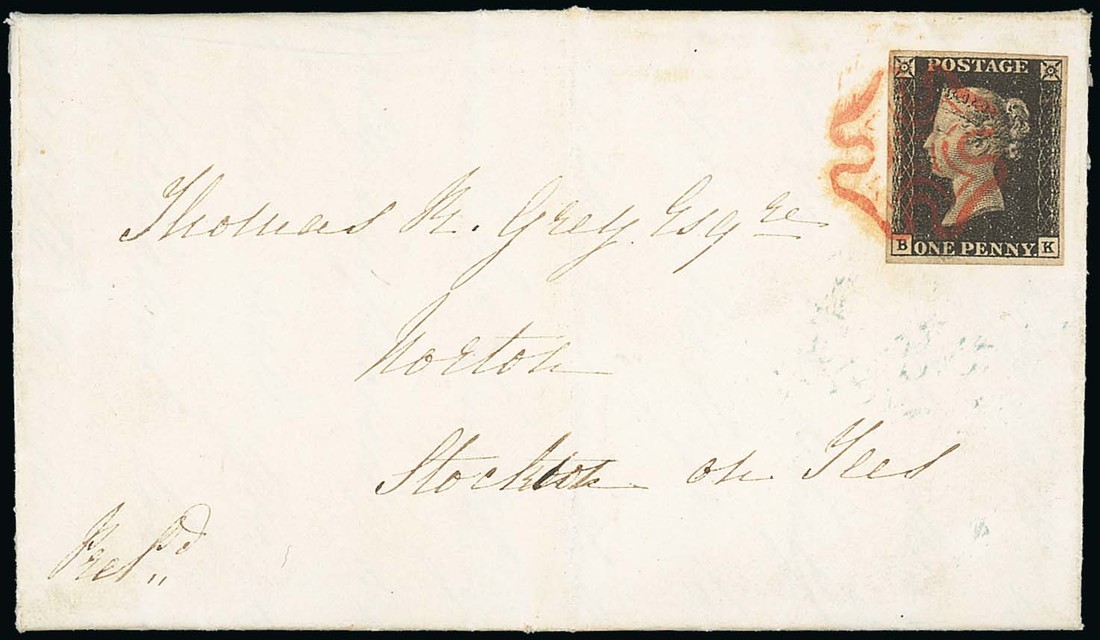 POSTAGE
B ONE PENNY. K
Thomas R. Grey Esqre
Norton
Stockton on Tees
Prepd